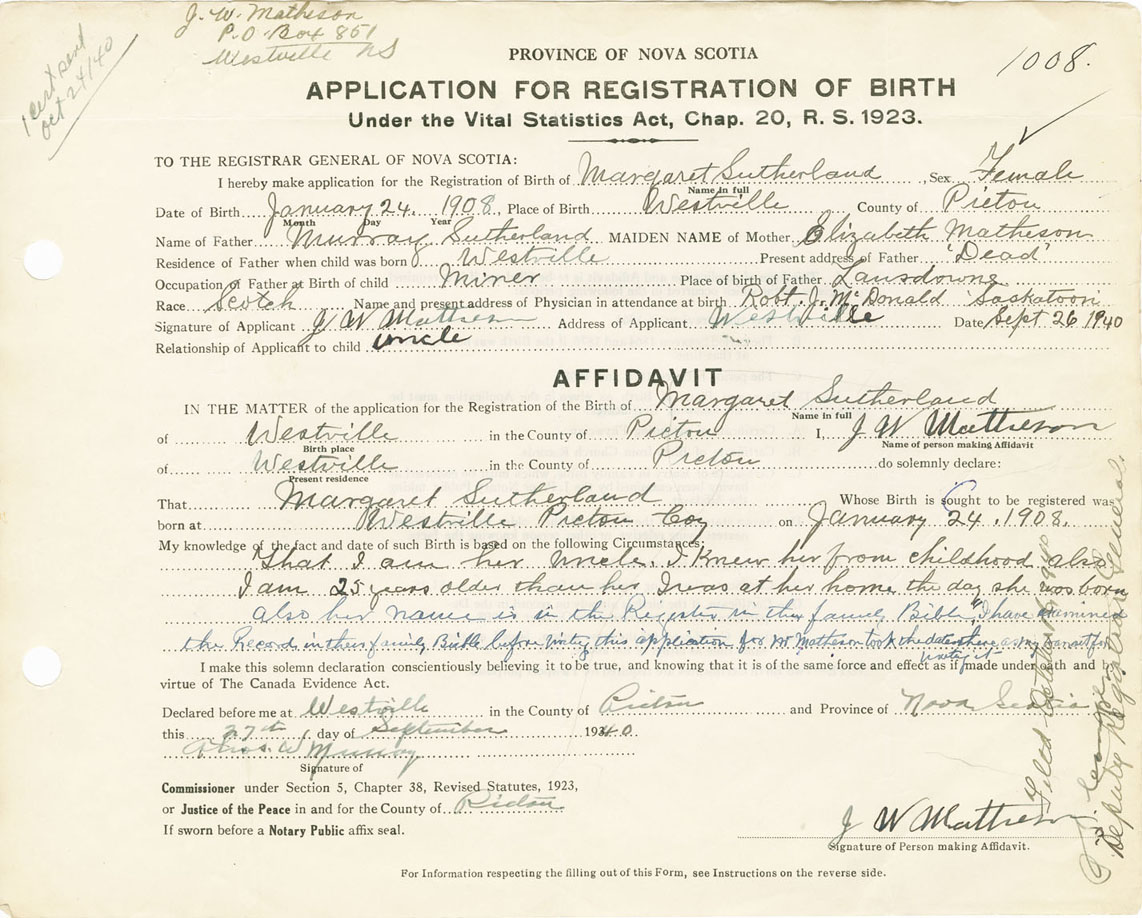 J. W. Matheson
P.O Box 851
Westville NS
1 cert sent
Oct 24/40
1008.
PROVINCE OF NOVA SCOTIA
APPLICATION FOR REGISTRATION OF BIRTH
Under the Vital Statistics Act, Chap. 20, R. S. 1923.
TO THE REGISTRAR GENERAL OF NOVA SCOTIA:
I hereby make application for the Registration of Birth of Margaret Sutherland, Sex Female
Name in full
Date of Birth January 24. 1908, Place of Birth Westville County of Pictou
Month Day Year
Name of Father Murray Sutherland MAIDEN NAME of Mother Elizabeth Matheson
Residence of Father when child was born Westville Present address of Father 'Dead'
Occupation of Father at Birth of child Miner Place of birth of Father Lansdowne
Race Scotch Name and present address of Physician in attendance at birth Robt. J. McDonald Saskatoon
Signature of Applicant J W Matheson Address of Applicant Westville Date Sept 26 1940
Relationship of Applicant to child uncle
AFFIDAVIT
IN THE MATTER of the application for the Registration of the Birth of Margaret Sutherland
Name in full
of Westville in the County of Pictou I, J W Matheson
Birth place Name of person making Affidavit
of Westville in the County of Pictou do solemnly declare:
Present residence
That Margaret Sutherland Whose Birth is sought to be registered was
born at Westville Pictou Coy on January 24, 1908.
My knowledge of the fact and date of such Birth is based on the following Circumstances:
That I am her Uncle. I knew her from childhood also
I am 25 years older than her I was at her home the day she was born
also her name is in the Register in the family Bible, I have examined
the Record in the family Bible before this application J W Matheson took the date
I make this solemn declaration conscientiously believing it to be true, and knowing that it is of the same force and effect as if made under oath and by
virtue of The Canada Evidence Act.
Declared before me at Westville in the County of Pictou and Province of Nova Scotia
this 27th day of September 1940.
W Murray
Signature of
Commissioner under Section 5, Chapter 38, Revised Statutes, 1923,
or Justice of the Peace in and for the County of Pictou
If sworn before a Notary Public affix seal.
J W Matheson
Signature of Person making Affidavit.
For Information respecting the filling out of this Form, see Instructions on the reverse side.
Filed October
Deputy Registrar General.